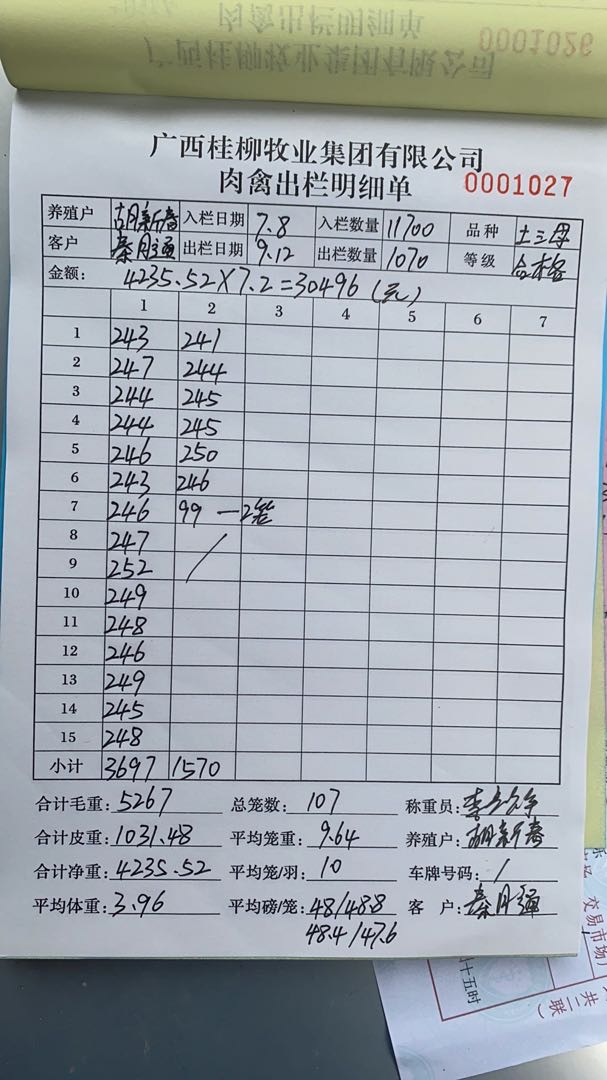 0001026
肉禽出栏明细单
广西桂柳牧业集团有限公司
广西桂柳牧业集团有限公司
肉禽出栏明细单 0001027
养殖户 胡新春 入栏日期 7.8 入栏数量 11700 品种 土三号
客户 秦月强 出栏日期 9.12 出栏数量 1070 等级 合格
金额: 4235.52×7.2=30496(元)
1 2 3 4 5 6 7
1 243 241
2 247 244
3 244 245
4 244 245
5 246 250
6 243 246
7 246 99 —2笼
8 247
9 252
10 249
11 248
12 246
13 249
14 245
15 248
小计 3697 1570
合计毛重: 5267 总笼数: 107 称重员:
合计皮重: 1031.48 平均笼重: 9.64 养殖户: 胡新春
合计净重: 4235.52 平均笼/羽: 10 车牌号码: /
平均体重: 3.96 平均磅/笼: 48/48.8 客 户: 秦月强
48.4/47.6
交易市场
共二联)
十五时